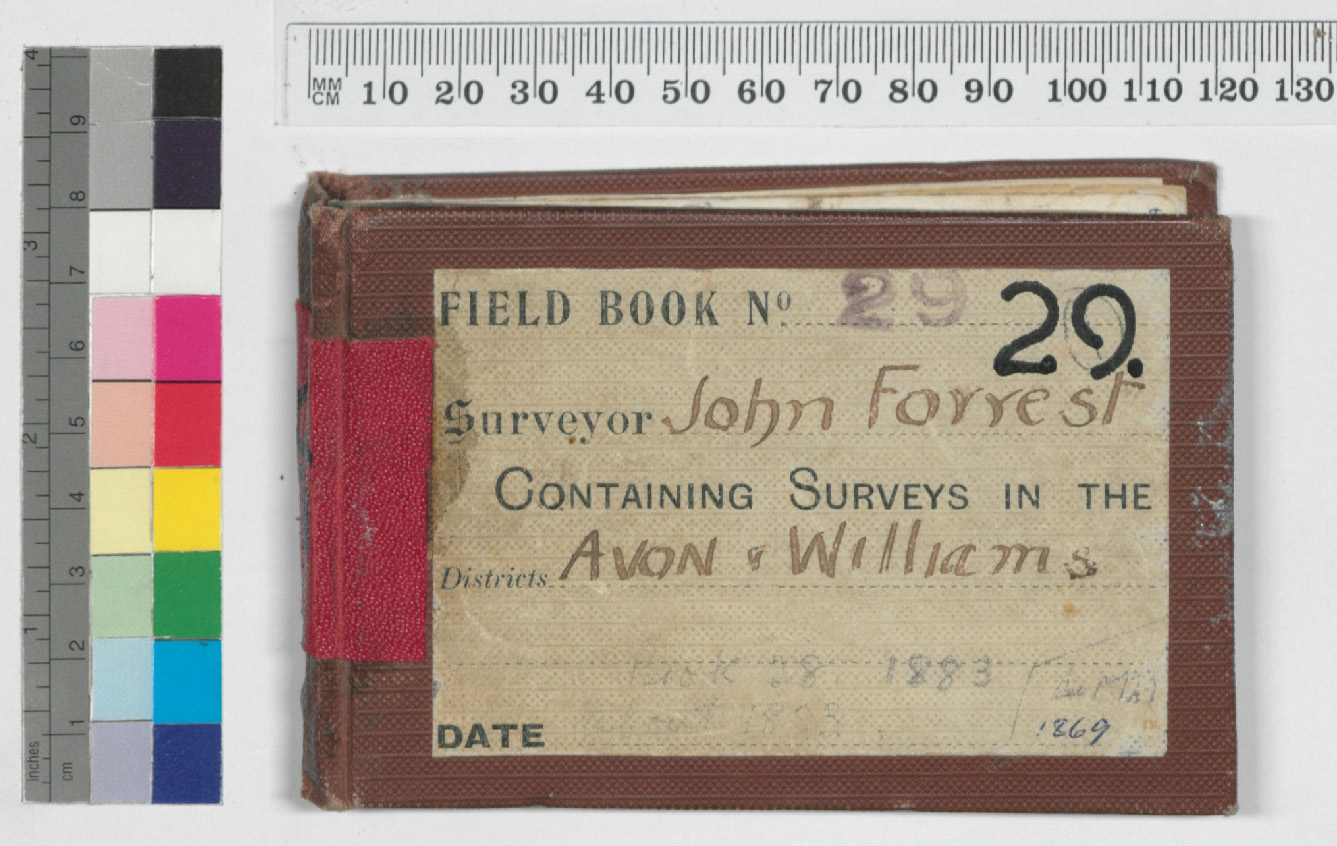 MM
CM 10 20 30 40 50 60 70 80 90 100 110 120 130
4
9
8
3
7
6
5
2
4
3
1
2
1
inches
cm
FIELD BOOK Nº 29 29.
Surveyor John Forrest
CONTAINING SURVEYS IN THE
Districts AVON & Williams
Book 28 1883
1883
DATE 1869